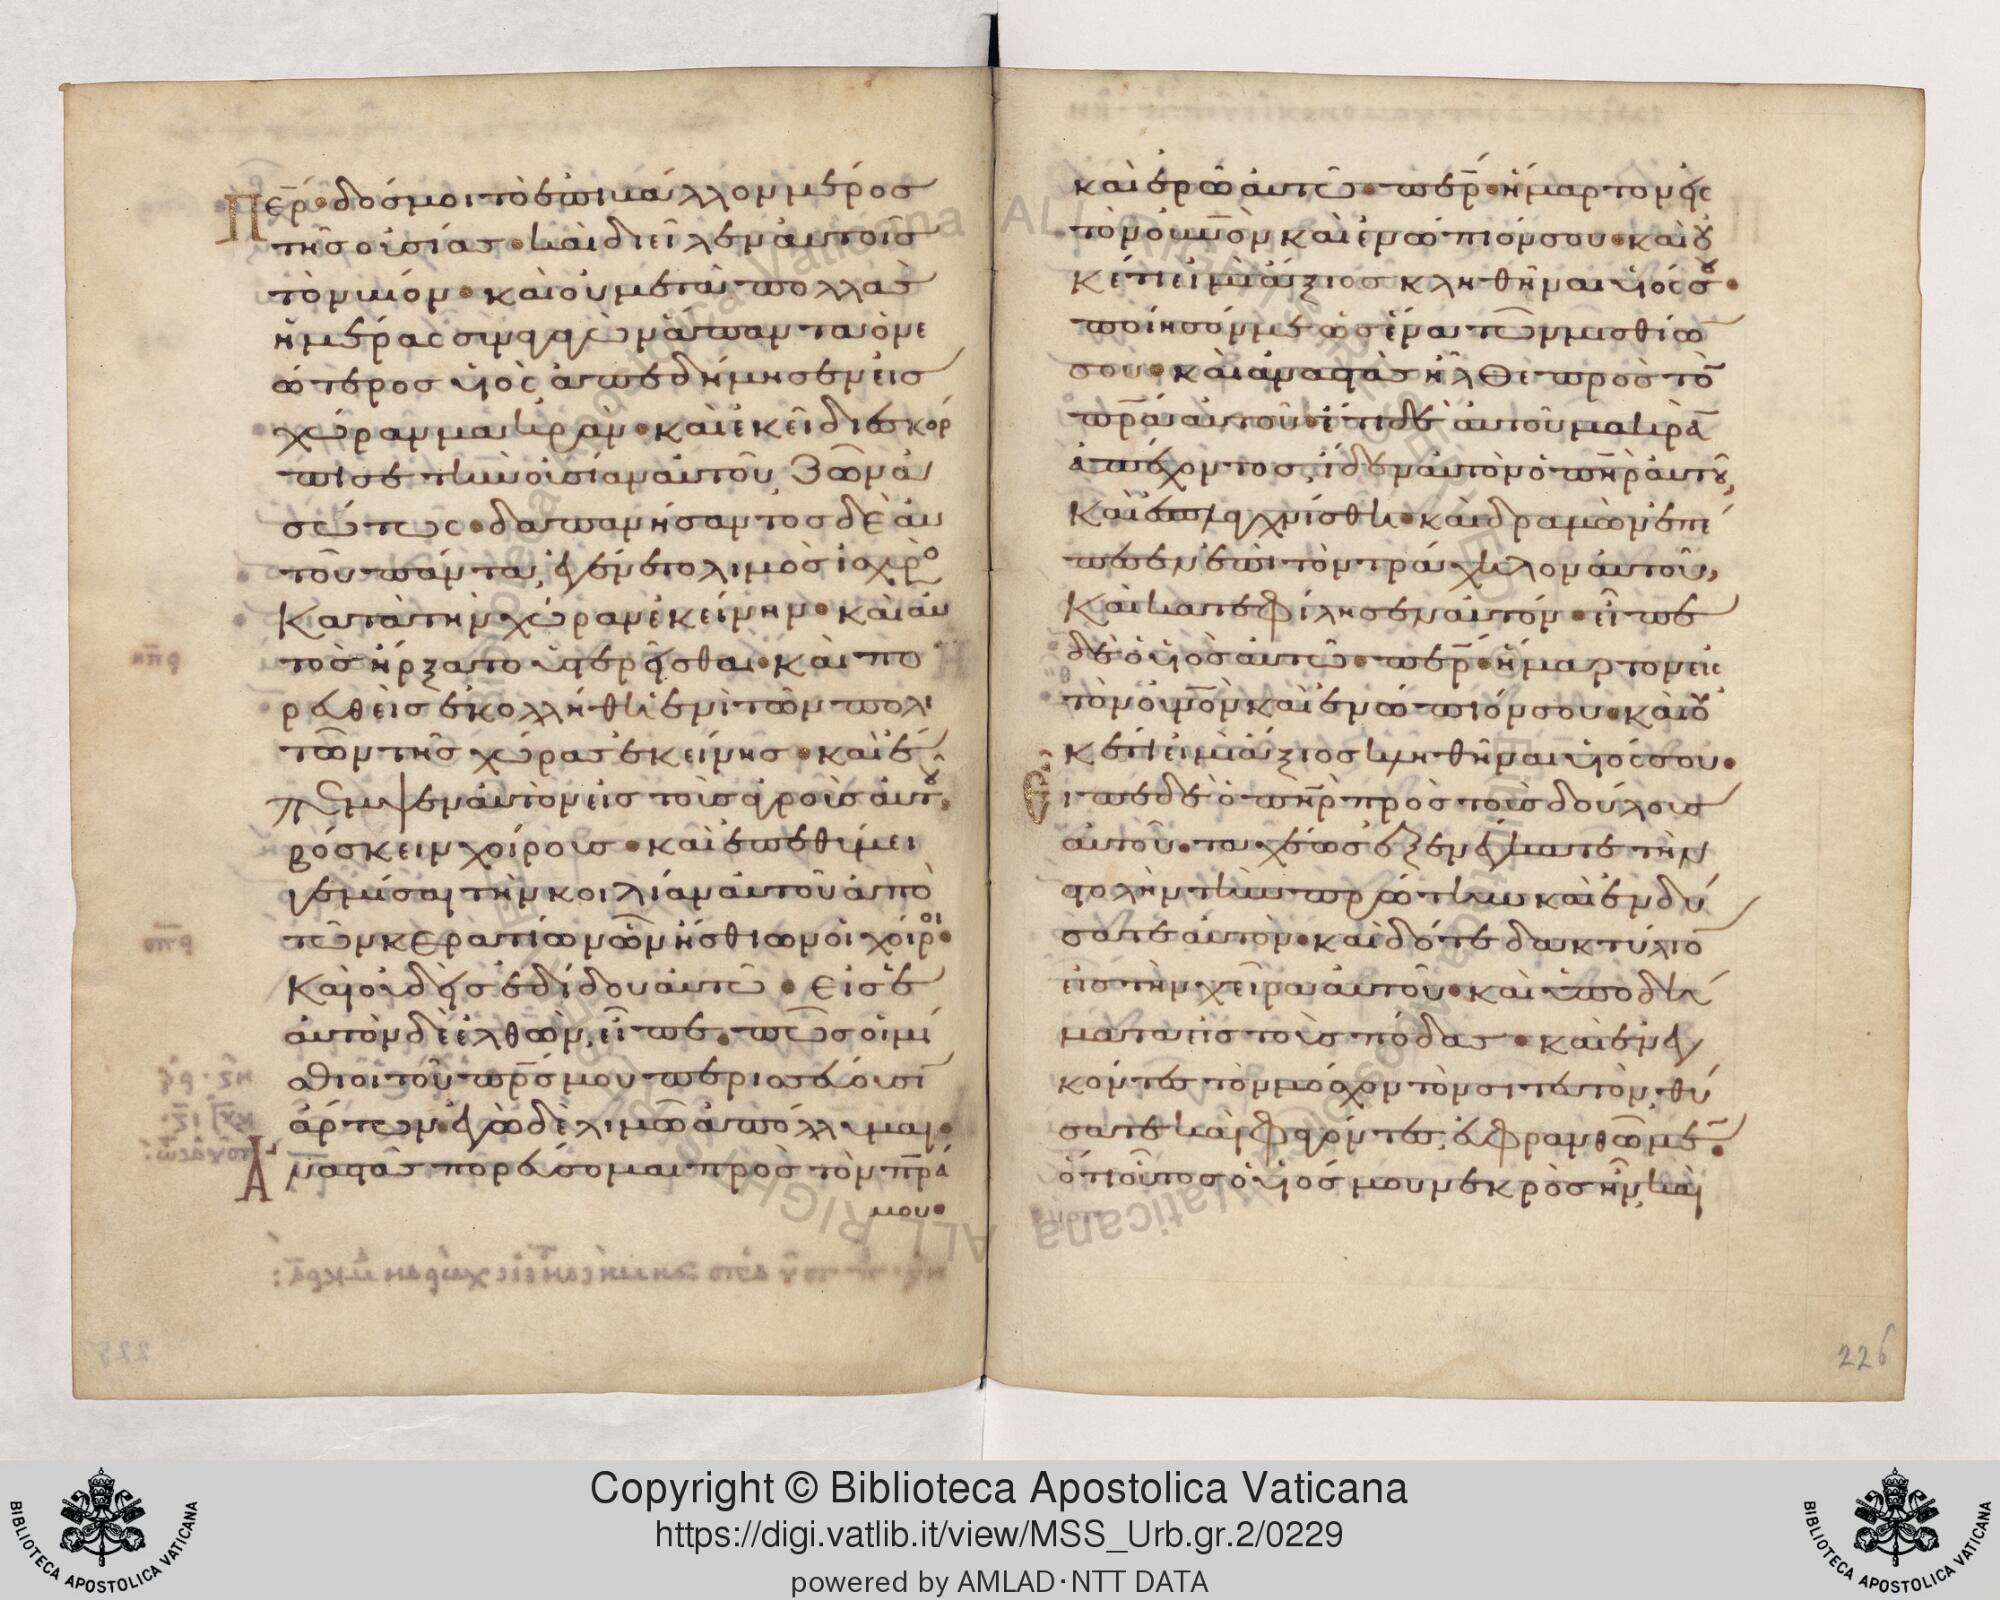 Περ· δός μοι τὸ ἐπιβάλλον μέρος
τῆς οὐσίας· καὶ διεῖλεν αὐτοῖς
τὸν βίον· καὶ οὐ μετὰ πολλὰς
ἡμέρας συναγαγὼν ἅπαντα ὁ νε
ώτερος υἱὸς ἀπεδήμησεν εἰς
χώραν μακράν· καὶ ἐκεῖ διεσκόρ
πισε τὴν οὐσίαν αὐτοῦ, ζῶν ἀ
σώτως· δαπανήσαντος δὲ αὐ
τοῦ πάντα, ἐγένετο λιμὸς ἰσχυρὸ
κατὰ τὴν χώραν ἐκείνην· καὶ αὐ
τὸς ἤρξατο ὑστερεῖσθαι· καὶ πο
ρευθεὶς ἐκολλήθη ἑνὶ τῶν πολι
τῶν τῆς χώρας ἐκείνης· καὶ ἔ
πεμψεν αὐτὸν εἰς τοὺς ἀγροὺς αὐτοῦ,
βόσκειν χοίρους· καὶ ἐπεθύμει
γεμίσαι τὴν κοιλίαν αὐτοῦ ἀπὸ
τῶν κερατίων ὧν ἤσθιον οἱ χοῖροι·
καὶ οὐδεὶς ἐδίδου αὐτῶ· εἰς ἑ
αυτὸν δὲ ἐλθὼν, εἶπε· πόσοι μί
σθιοι τοῦ πρς μου περισσεύουσι
ἄρτων· ἐγὼ δὲ λιμῶ ἀπόλλυμαι·
Ἀναστὰς πορεύσομαι πρὸς τὸν πρα
μου·
καὶ ἐρῶ αὐτῶ· περ· ἥμαρτον εἰς
τὸν οὐνὸν καὶ ἐνώπιόν σου· καὶ οὐ
κέτι εἰμὶ ἄξιος κληθῆναι υἱός σου·
ποίησόν με ὡς ἕνα τῶν μισθίω
σου· καὶ ἀναστὰς ἦλθε πρὸς τὸ
πρα αὐτοῦ· ἔτι δὲ αὐτοῦ μακρὰ
ἀπέχοντος, ἴδεν αὐτὸν ὁ πηρ αὐτοῦ,
καὶ ἐσπλαγχνίσθη· καὶ δραμὼν ἐπέ
πεσεν ἐπὶ τὸν τράχηλον αὐτοῦ,
καὶ κατεφίλησεν αὐτόν· εἶπε
δὲ ὁ υἱὸς αὐτῶ· περ· ἥμαρτον εἰς
τὸν οὐνὸν καὶ ἐνώπιόν σου· καὶ οὐ
κέτι εἰμὶ ἄξιος κληθῆναι υἱός σου·
Εἶπε δὲ ὁ πηρ πρὸς τοὺς δούλους
αὐτοῦ· ταχέως ἐξενέγκατε τὴν
στολὴν τὴν πρώτην καὶ ἐνδύ
σατε αὐτὸν· καὶ δότε δακτύλιο
εἰς τὴν χεῖρα αὐτοῦ· καὶ ὑποδή
ματα εἰς τοὺς πόδας· καὶ ἐνέγ
κοντες τὸν μόσχον τὸν σιτευτὸν, θύ
σατε καὶ φαγόντες, εὐφρανθῶμεν·
ὅτι οὗτος ὁ υἱός μου νεκρὸς ἦν, καὶ
226
BIBLIOTECA APOSTOLICA VATICANA
Copyright © Biblioteca Apostolica Vaticana
https://digi.vatlib.it/view/MSS_Urb.gr.2/0229
powered by AMLAD·NTT DATA
BIBLIOTECA APOSTOLICA VATICANA